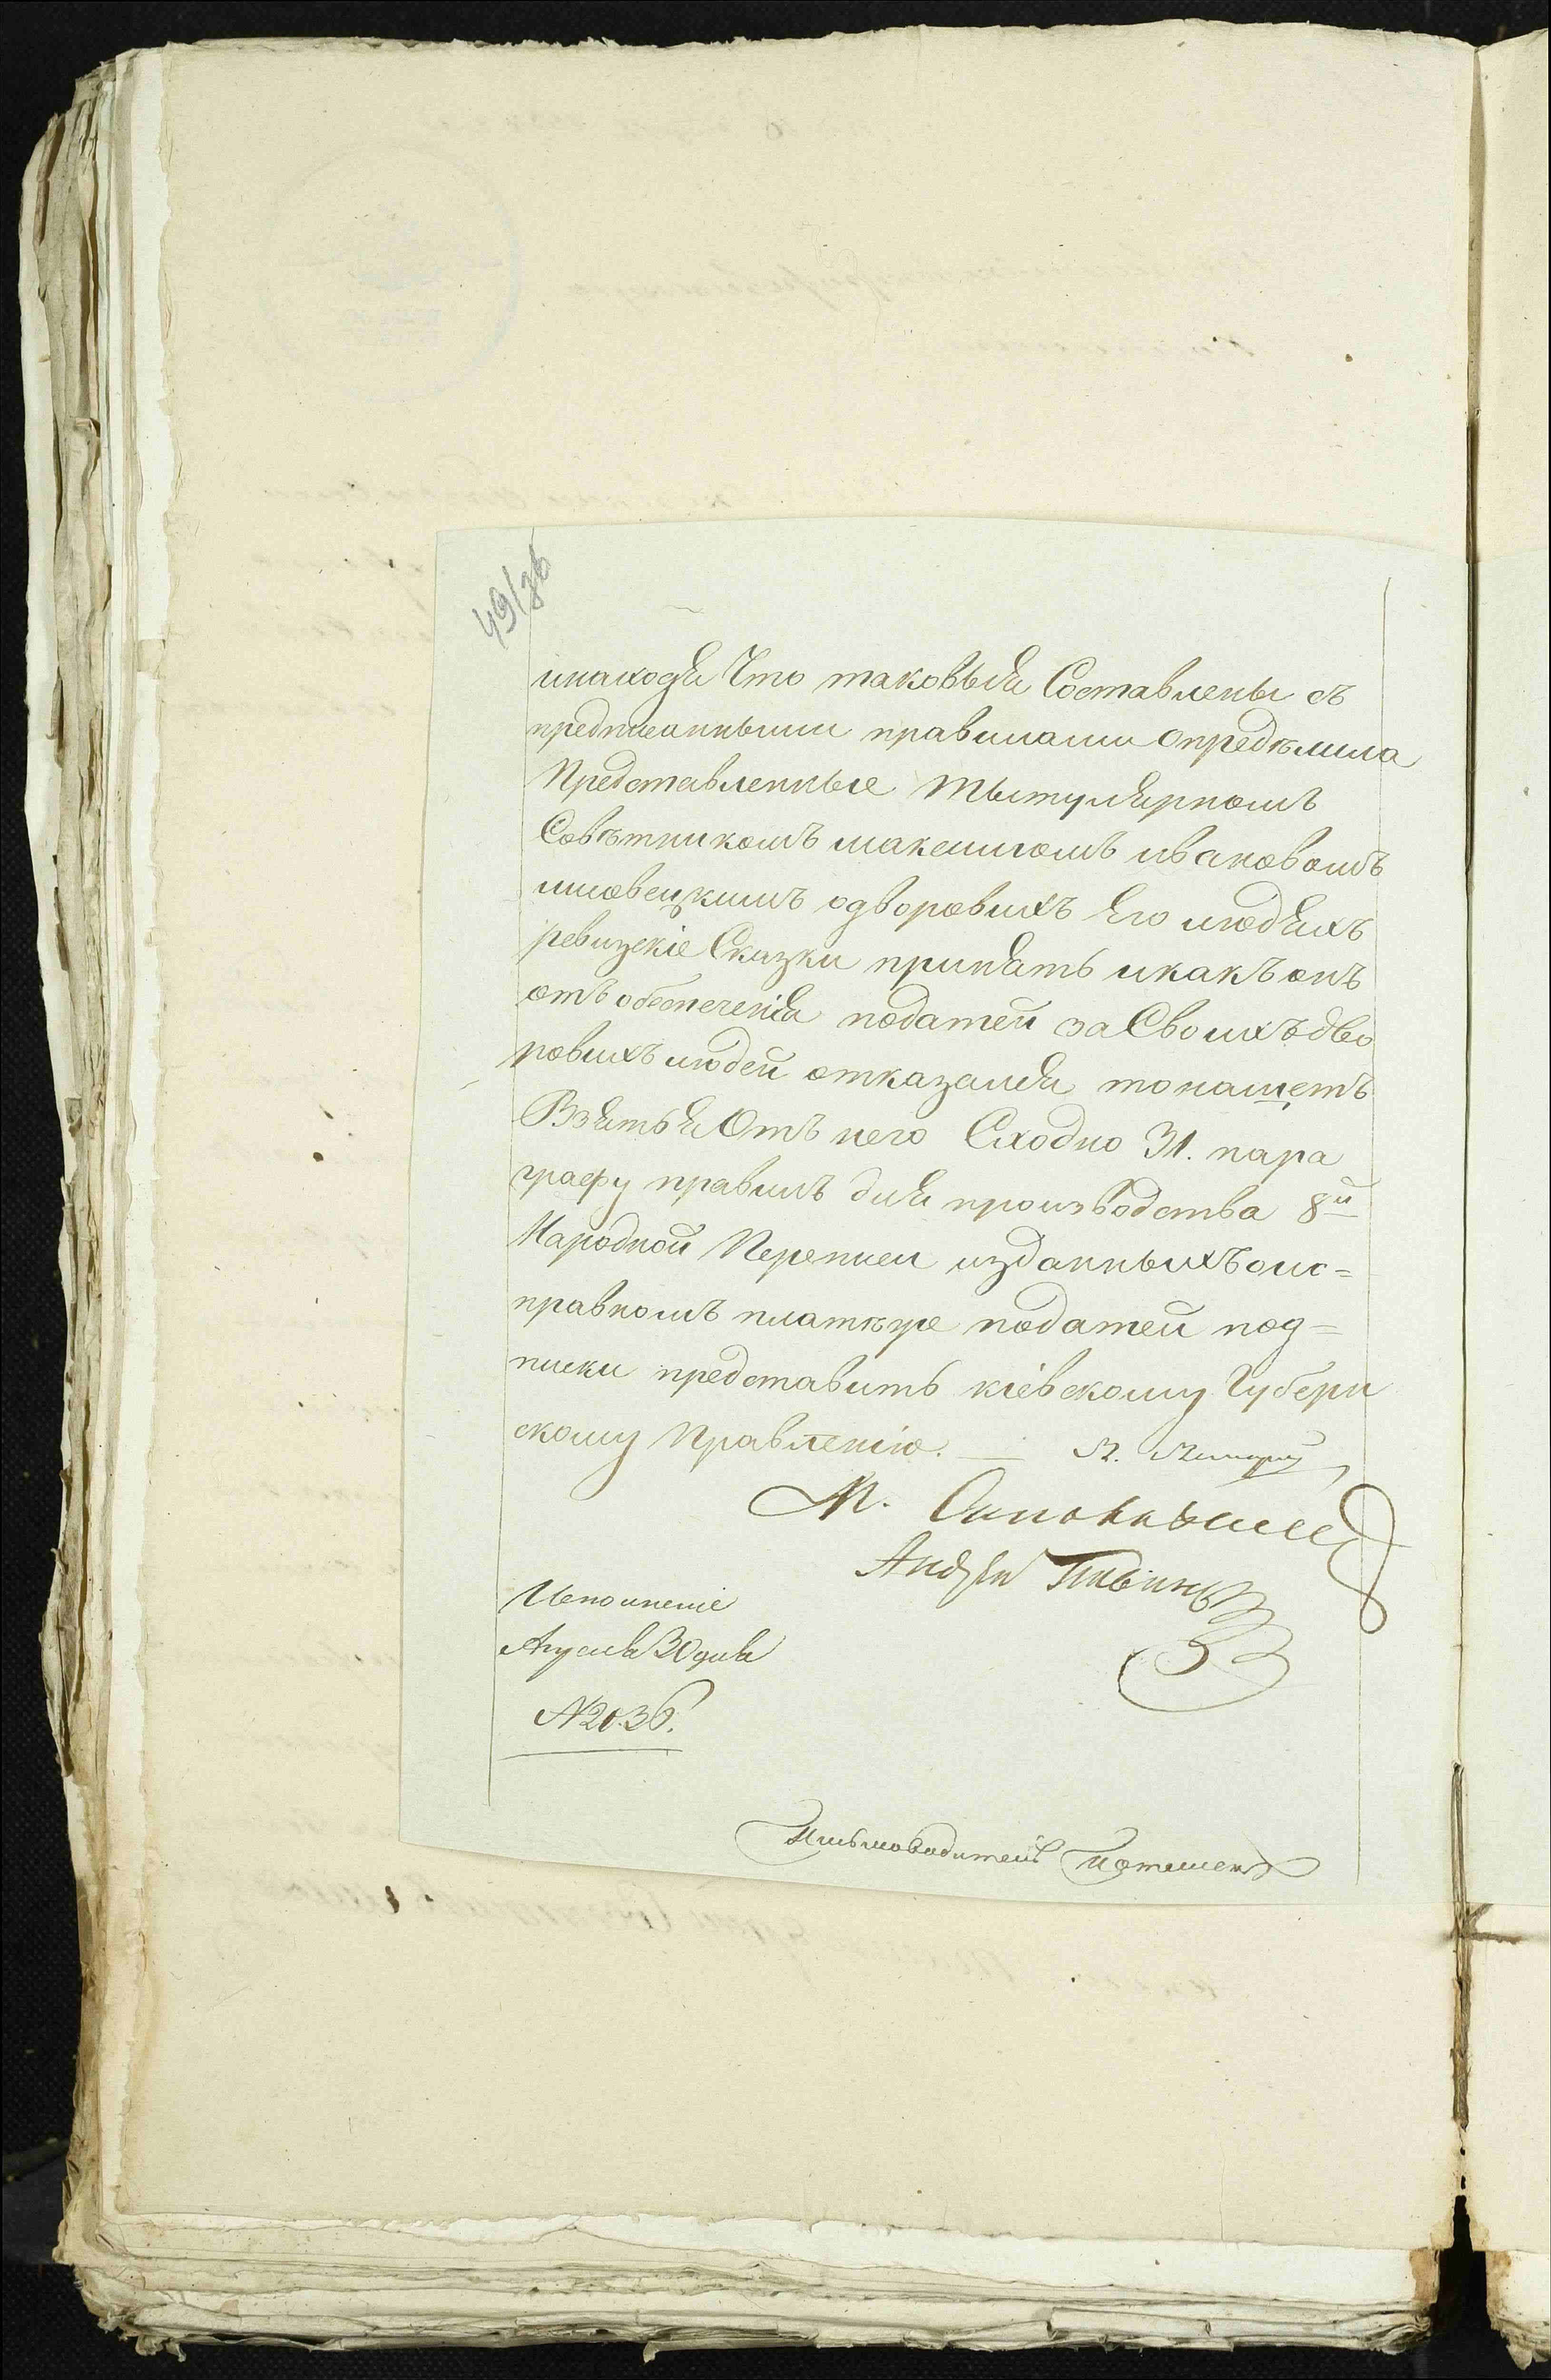 49/36
инаходя Что таковыя Составлены съ
предписанными правилами опредѣлила
Представленные Тытулярномъ
Совѣтникомъ макеимомъ ивановомъ
одворовихъ Его людяхъ
ревизскіе Сказки принять икакъ онъ
отъ обеспеченія податей за Своихъ дво
ровихъ людей отказался то
Взятья Отъ него Сходно 31. пара
графу правилъ для производства 8й
Народной Переписи изданныхъ оис=
правномъ платѣже податей под=
писки представить кіевскому Губерн
скому Правленію.
М.
Андрей
Исполненіе
Августа 30 дня
№ 2036.
Письмоводитель